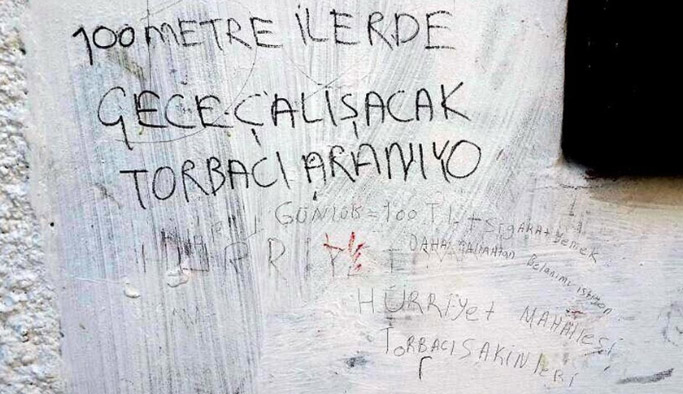 100 METRE İLERDE
GECE ÇALIŞACAK
TORBACI ARANIYO
GÜNLÜK = 100 TL + SigARA + Yemek
DAHA Belanımı istiyon
HÜRRİYet MAHAllesi
TORBACI SAKİNleri